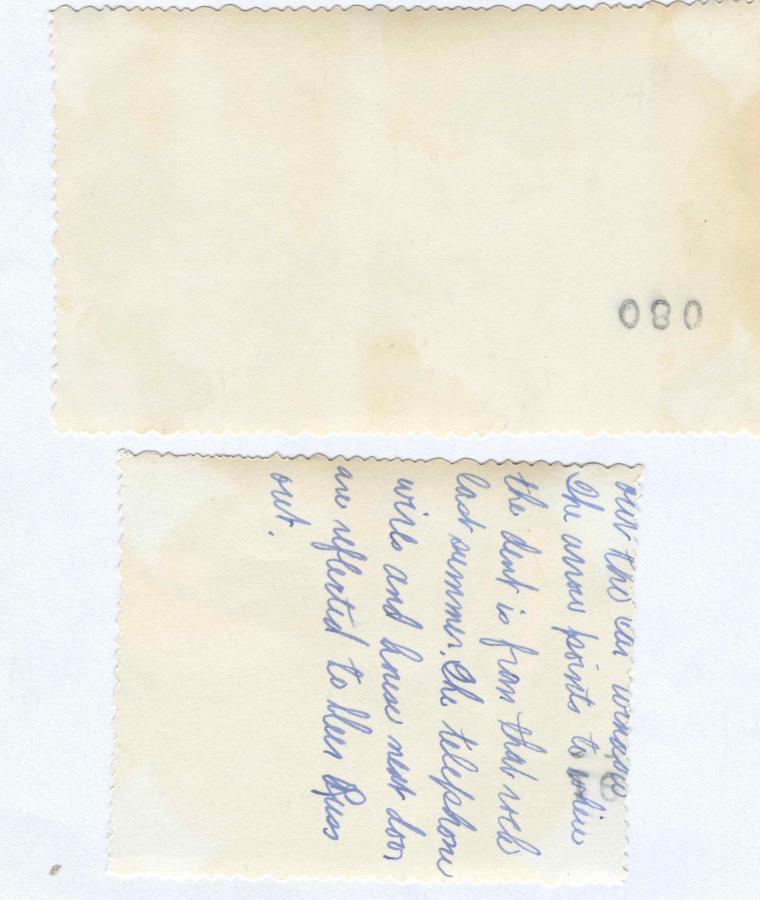 080
our the car window
The arrow points to where
the dent is from that rock
last summer. The telephone
wires and house next door
are reflected to bless Russ
out.